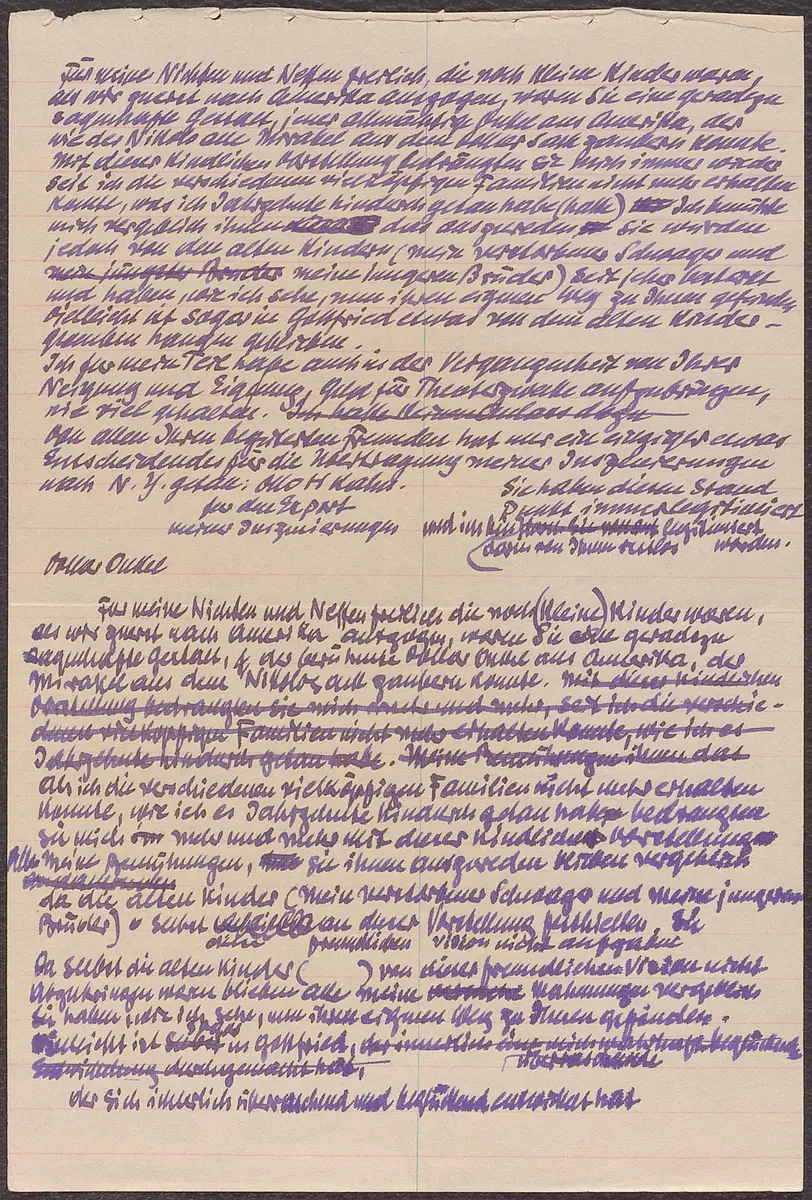 Für meine Nichten und Neffen freilich, die noch kleine Kinder waren,
als wir zuerst nach Amerika auszogen, waren Sie eine geradezu
sagenhafte Gestalt, jener allmächtige Onkel aus Amerika, der
wie der Nikolo alle Mirakel aus dem Dollar Sack zaubern konnte.
Mit dieser kindlichen Vorstellung bedrängten sie mich immer wieder
seit ich die verschiedenen vielköpfigen Familien nicht mehr erhalten
konnte, was ich Jahrzehnte hindurch getan habe (hatte) Ich bemühte
mich vergeblich ihnen das auszureden sie wurden
jedoch von den alten Kindern (mein verstorbener Schwager und
mein jüngster Bruder meine jüngeren Brüder) seit jeher
und haben, wie ich sehe, nun ihren eigenen Weg zu Ihnen gefunden
Vielleicht ist sogar in Gottfried etwas von dem alten Kinder-
glauben hängen geblieben.
Ich für mein Teil habe auch in der Vergangenheit von Ihrer
Neigung und Eignung, Geld für Theaterzwecke aufzubringen,
nie viel gehalten. Ich habe keinen Anlass dazu
Von allen Ihren begeisterten Freunden hat nur ein einziger etwas
Entscheidendes für die Übertragung meiner Inszenierungen
nach N. Y. getan: Otto H Kahn.
Sie haben diesen Stand
für den Export
Punkt immer legitimiert
meiner Inszenierungen
und ich bin legitimiert
(darin von Ihnen restlos worden.
Dollar Onkel
Für meine Nichten und Neffen freilich die noch (kleine) Kinder waren,
als wir zuerst nach Amerika auszogen, waren Sie eine geradezu
sagenhafte Gestalt, der berühmte Dollar Onkel aus Amerika, der
Mirakel aus dem Nikolosack zaubern konnte. Mit dieser kindlichen
Vorstellung bedrängten sie mich mehr und mehr, seit ich die verschie-
denen vielköpfigen Familien nicht mehr erhalten konnte, wie ich es
Jahrzehnte hindurch getan habe. Meine Bemühungen ihnen das
Als ich die verschiedenen vielköpfigen Familien nicht mehr erhalten
konnte, wie ich es Jahrzehnte hindurch getan habe bedrängten
sie mich mehr und mehr mit dieser kindlichen Vorstellung
Alle meine Bemühungen, sie ihnen auszureden blieben vergeblich
da die alten Kinder (mein verstorbener Schwager und meine jüngeren
Brüder) selbst an dieser Vorstellung festhielten. Sie
diese freundlichen Vision nicht aufgaben
Da selbst die alten Kinder ( ) von dieser freundlichen Vision nicht
abzubringen waren blieben alle meine Mahnungen vergeblich
Sie haben, wie ich sehe, nun ihren eigenen Weg zu Ihnen gefunden.
Vielleicht ist sogar in Gottfried, der innerlich eine beglückende
überraschende
Entwicklung durchgemacht hat,
der sich innerlich überraschend und beglückend entwickelt hat